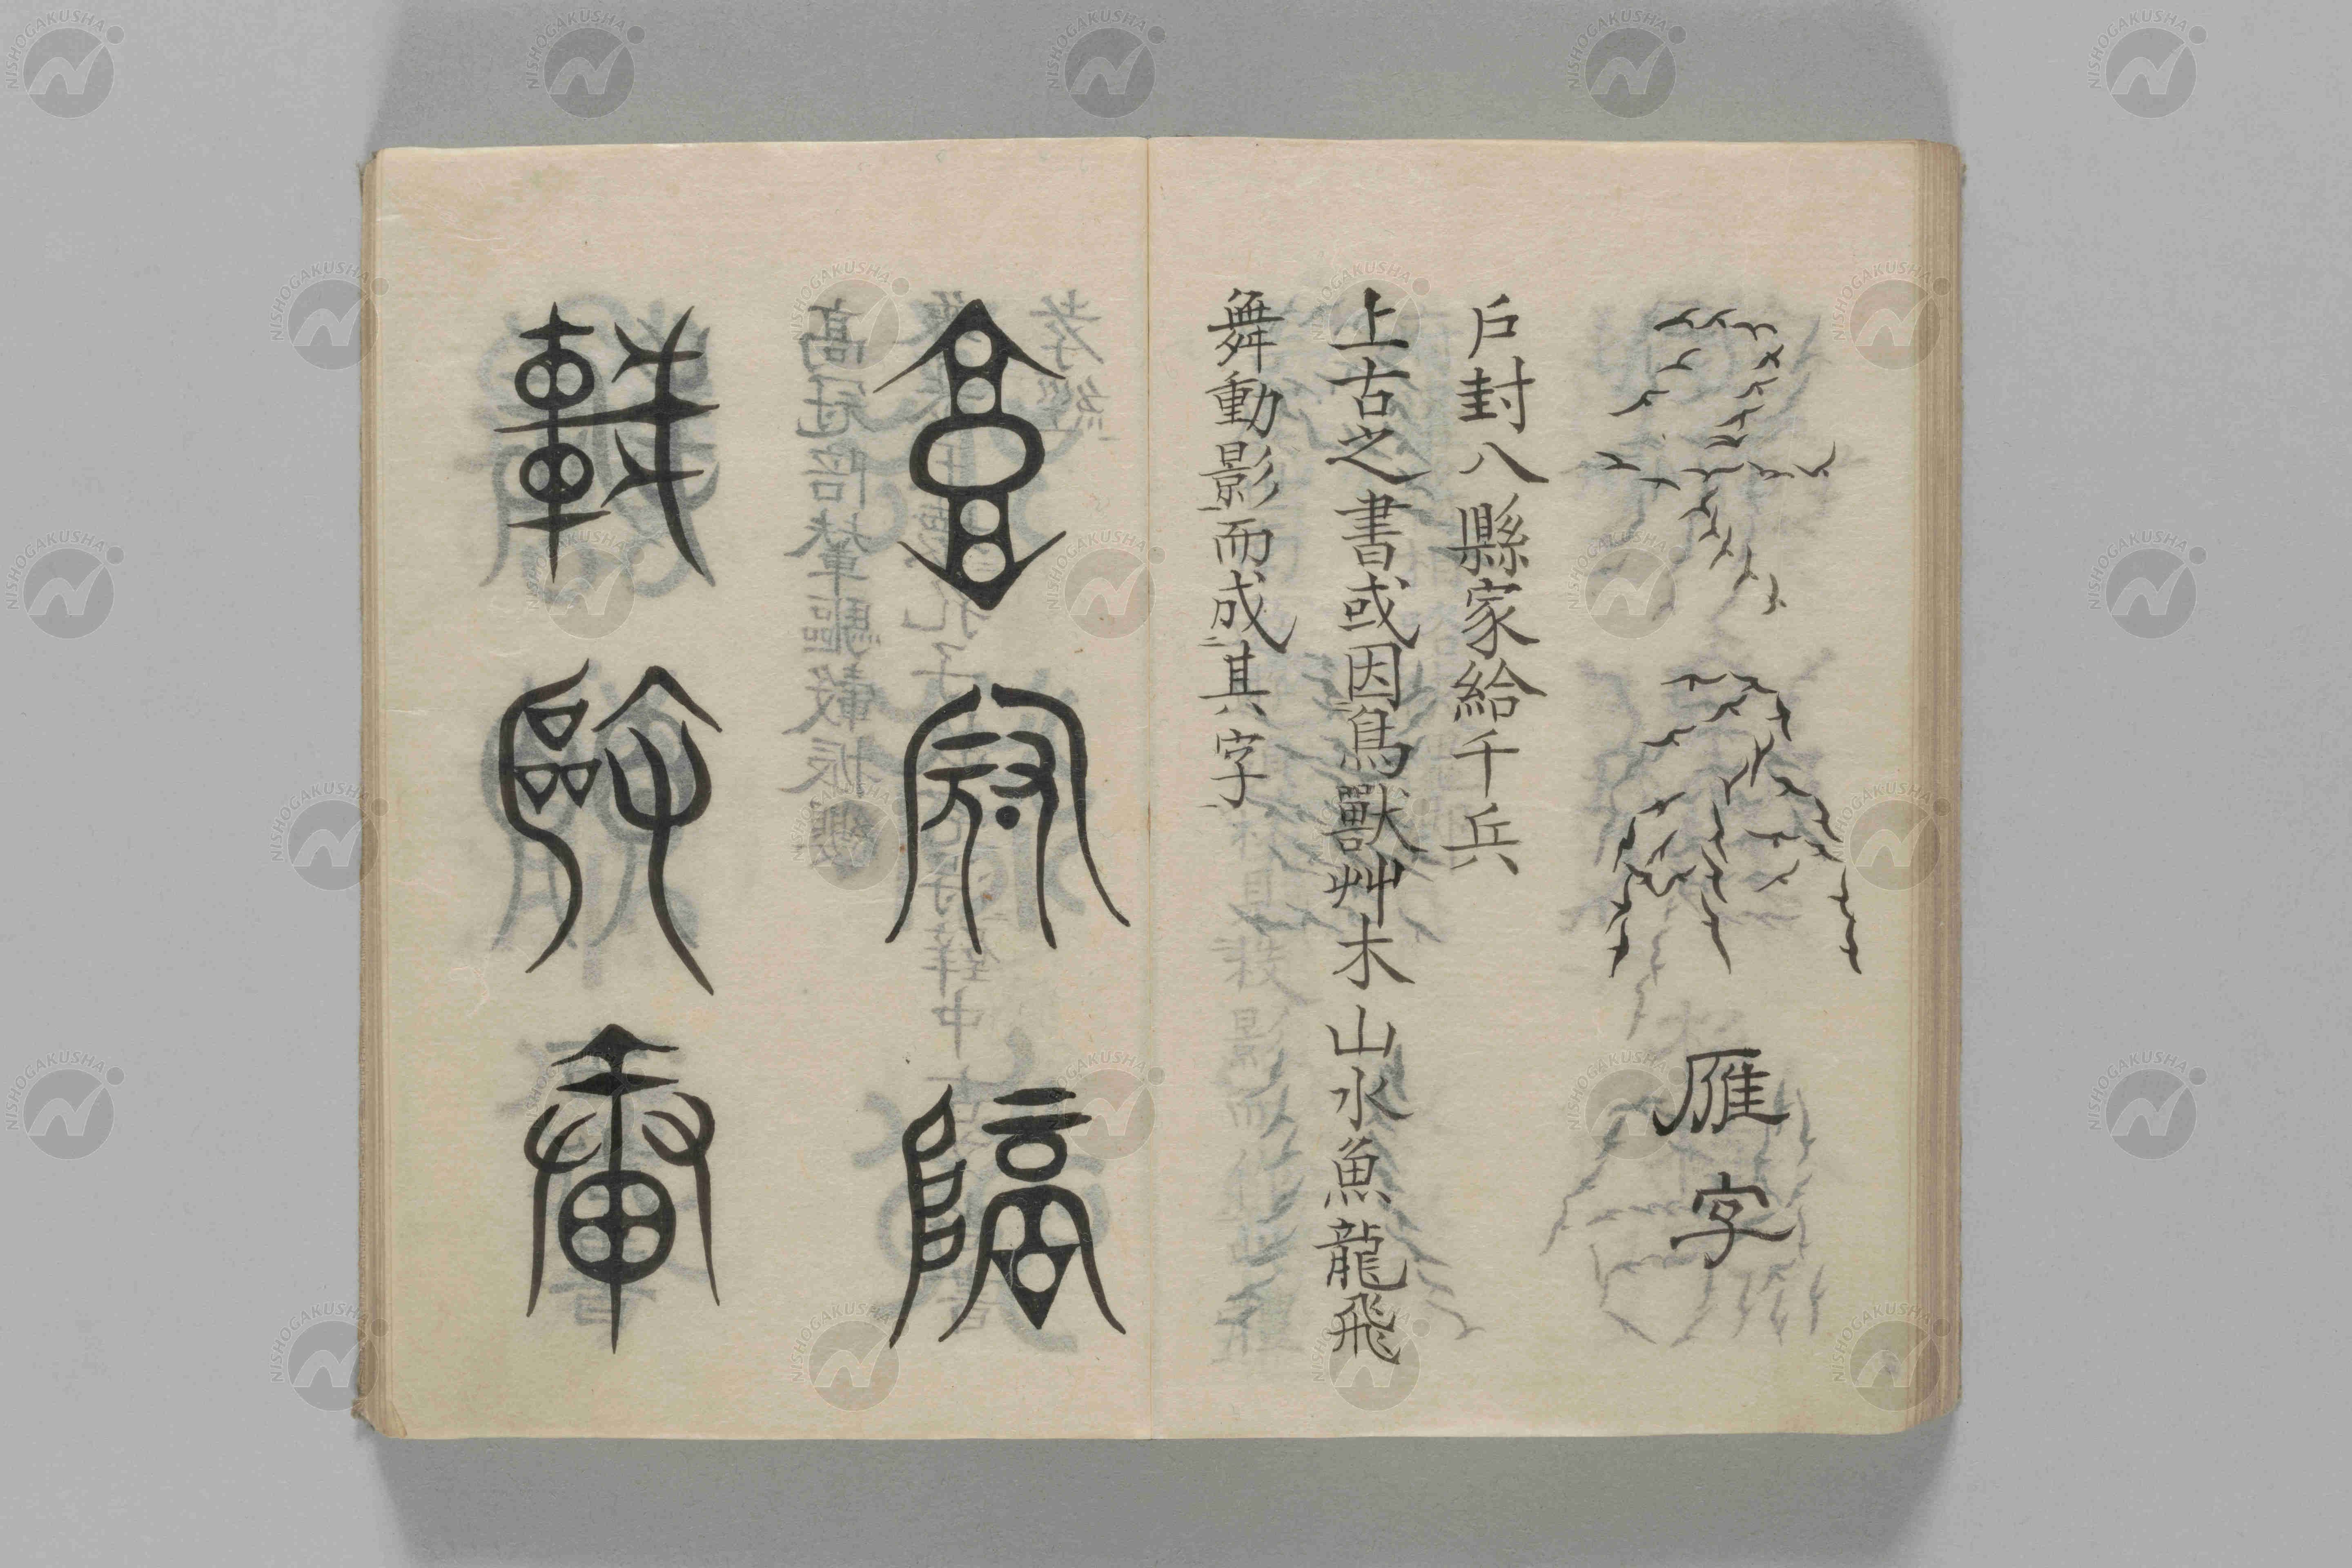 千兵 雁字
戶封八縣家給千兵
上古之書或因鳥獸艸木山水魚龍飛
舞動影而成其字
高冠陪
NISHOGAKUSHA